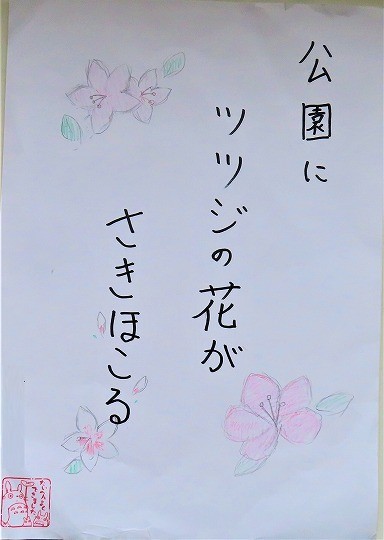 公園に
ツツジの花が
さきほこる